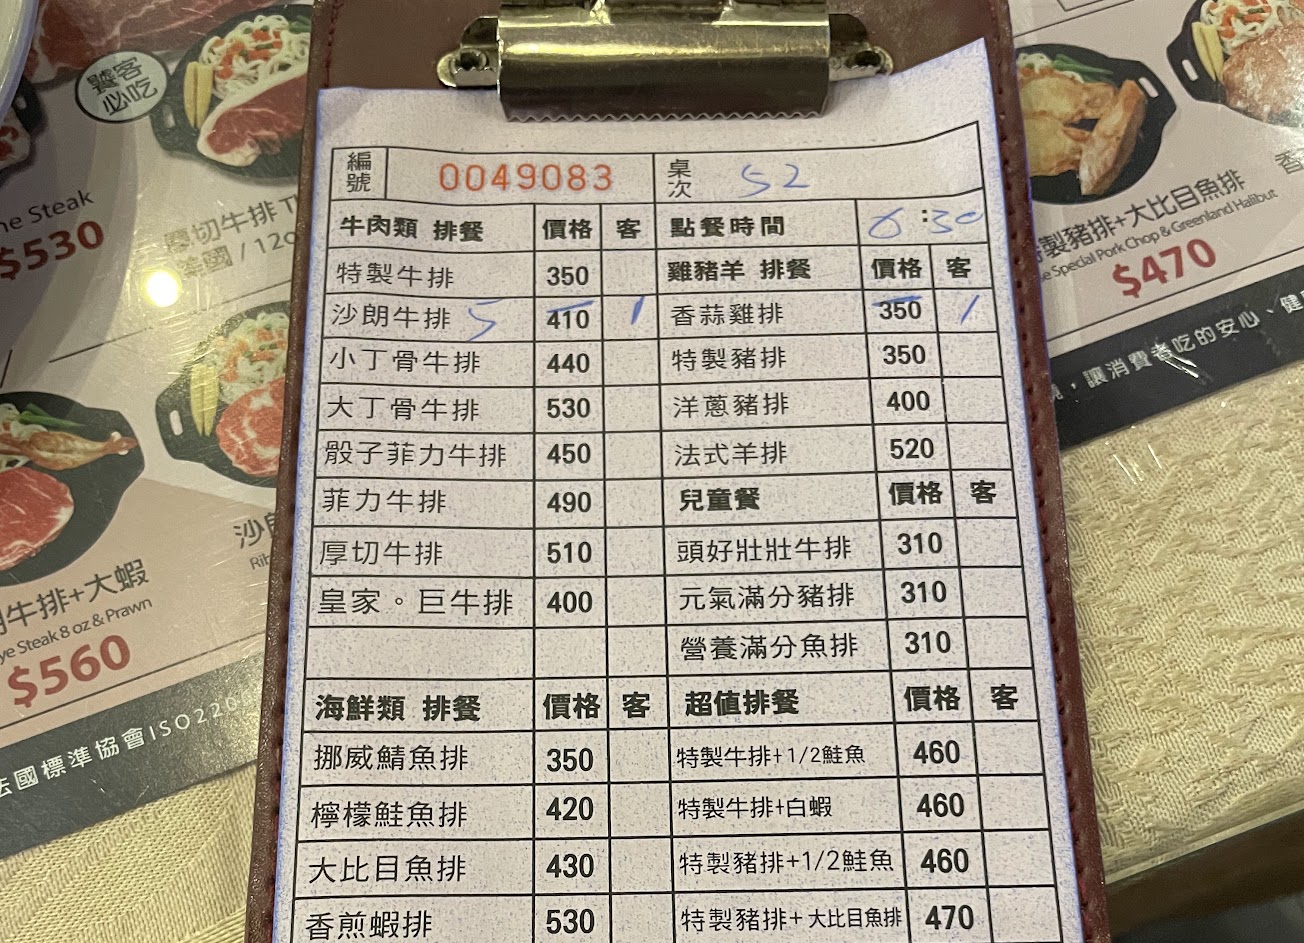 編號 0049083 桌次 52
牛肉類 排餐 價格 客 點餐時間 6:30
特製牛排 350 雞豬羊 排餐 價格 客
沙朗牛排 5 410 1 香蒜雞排 350 1
小丁骨牛排 440 特製豬排 350
大丁骨牛排 530 洋蔥豬排 400
骰子菲力牛排 450 法式羊排 520
菲力牛排 490 兒童餐 價格 客
厚切牛排 510 頭好壯壯牛排 310
皇家。巨牛排 400 元氣滿分豬排 310
營養滿分魚排 310
海鮮類 排餐 價格 客 超值排餐 價格 客
挪威鯖魚排 350 特製牛排+1/2鮭魚 460
檸檬鮭魚排 420 特製牛排+白蝦 460
大比目魚排 430 特製豬排+1/2鮭魚 460
香煎蝦排 530 特製豬排+大比目魚排 470
饕客
必吃
Steak
$530
厚切牛排
/ 12o
沙朗
Rib
牛排+大蝦
Steak 8 oz & Prawn
$560
法國標準協會ISO220
製豬排+大比目魚排
Special Pork Chop & Greenland Halibut
$470
香
,讓消費者吃的安心、健